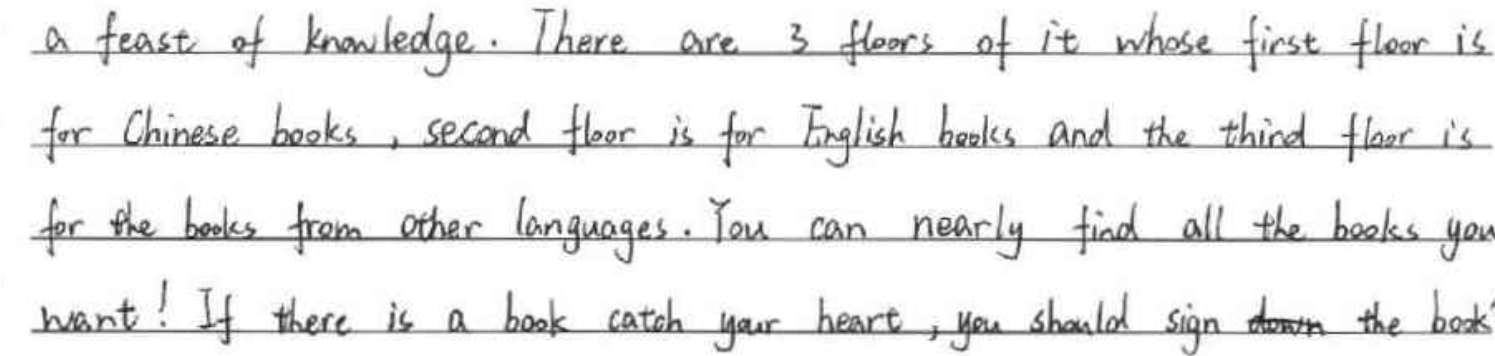 a feast of knowledge. There are 3 floors of it whose first floor is
for Chinese books, second floor is for English books and the third floor is
for the books from other languages. You can nearly find all the books you
want! If there is a book catch your heart, you should sign down the book'